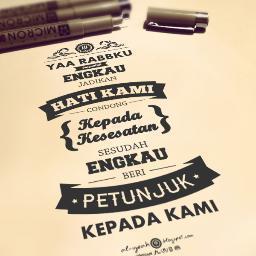 MICRON
YAA RABBKU
JANGANLAH
ENGKAU
JADIKAN
HATI KAMI
CONDONG
Kepada
Kesesatan
SESUDAH
ENGKAU
BERI
PETUNJUK
KEPADA KAMI